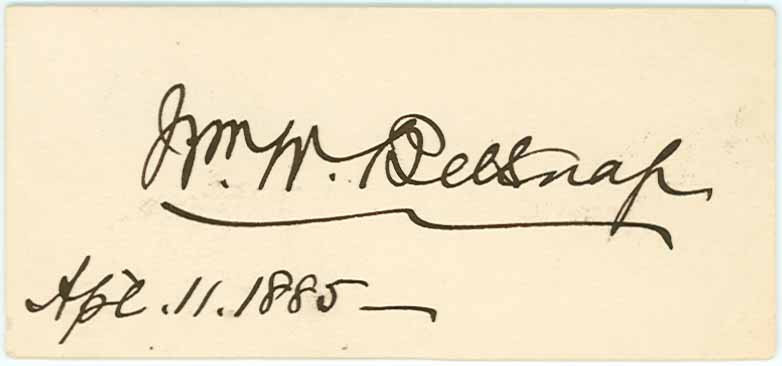 Wm. W. Belknap
Apl. 11. 1885 —